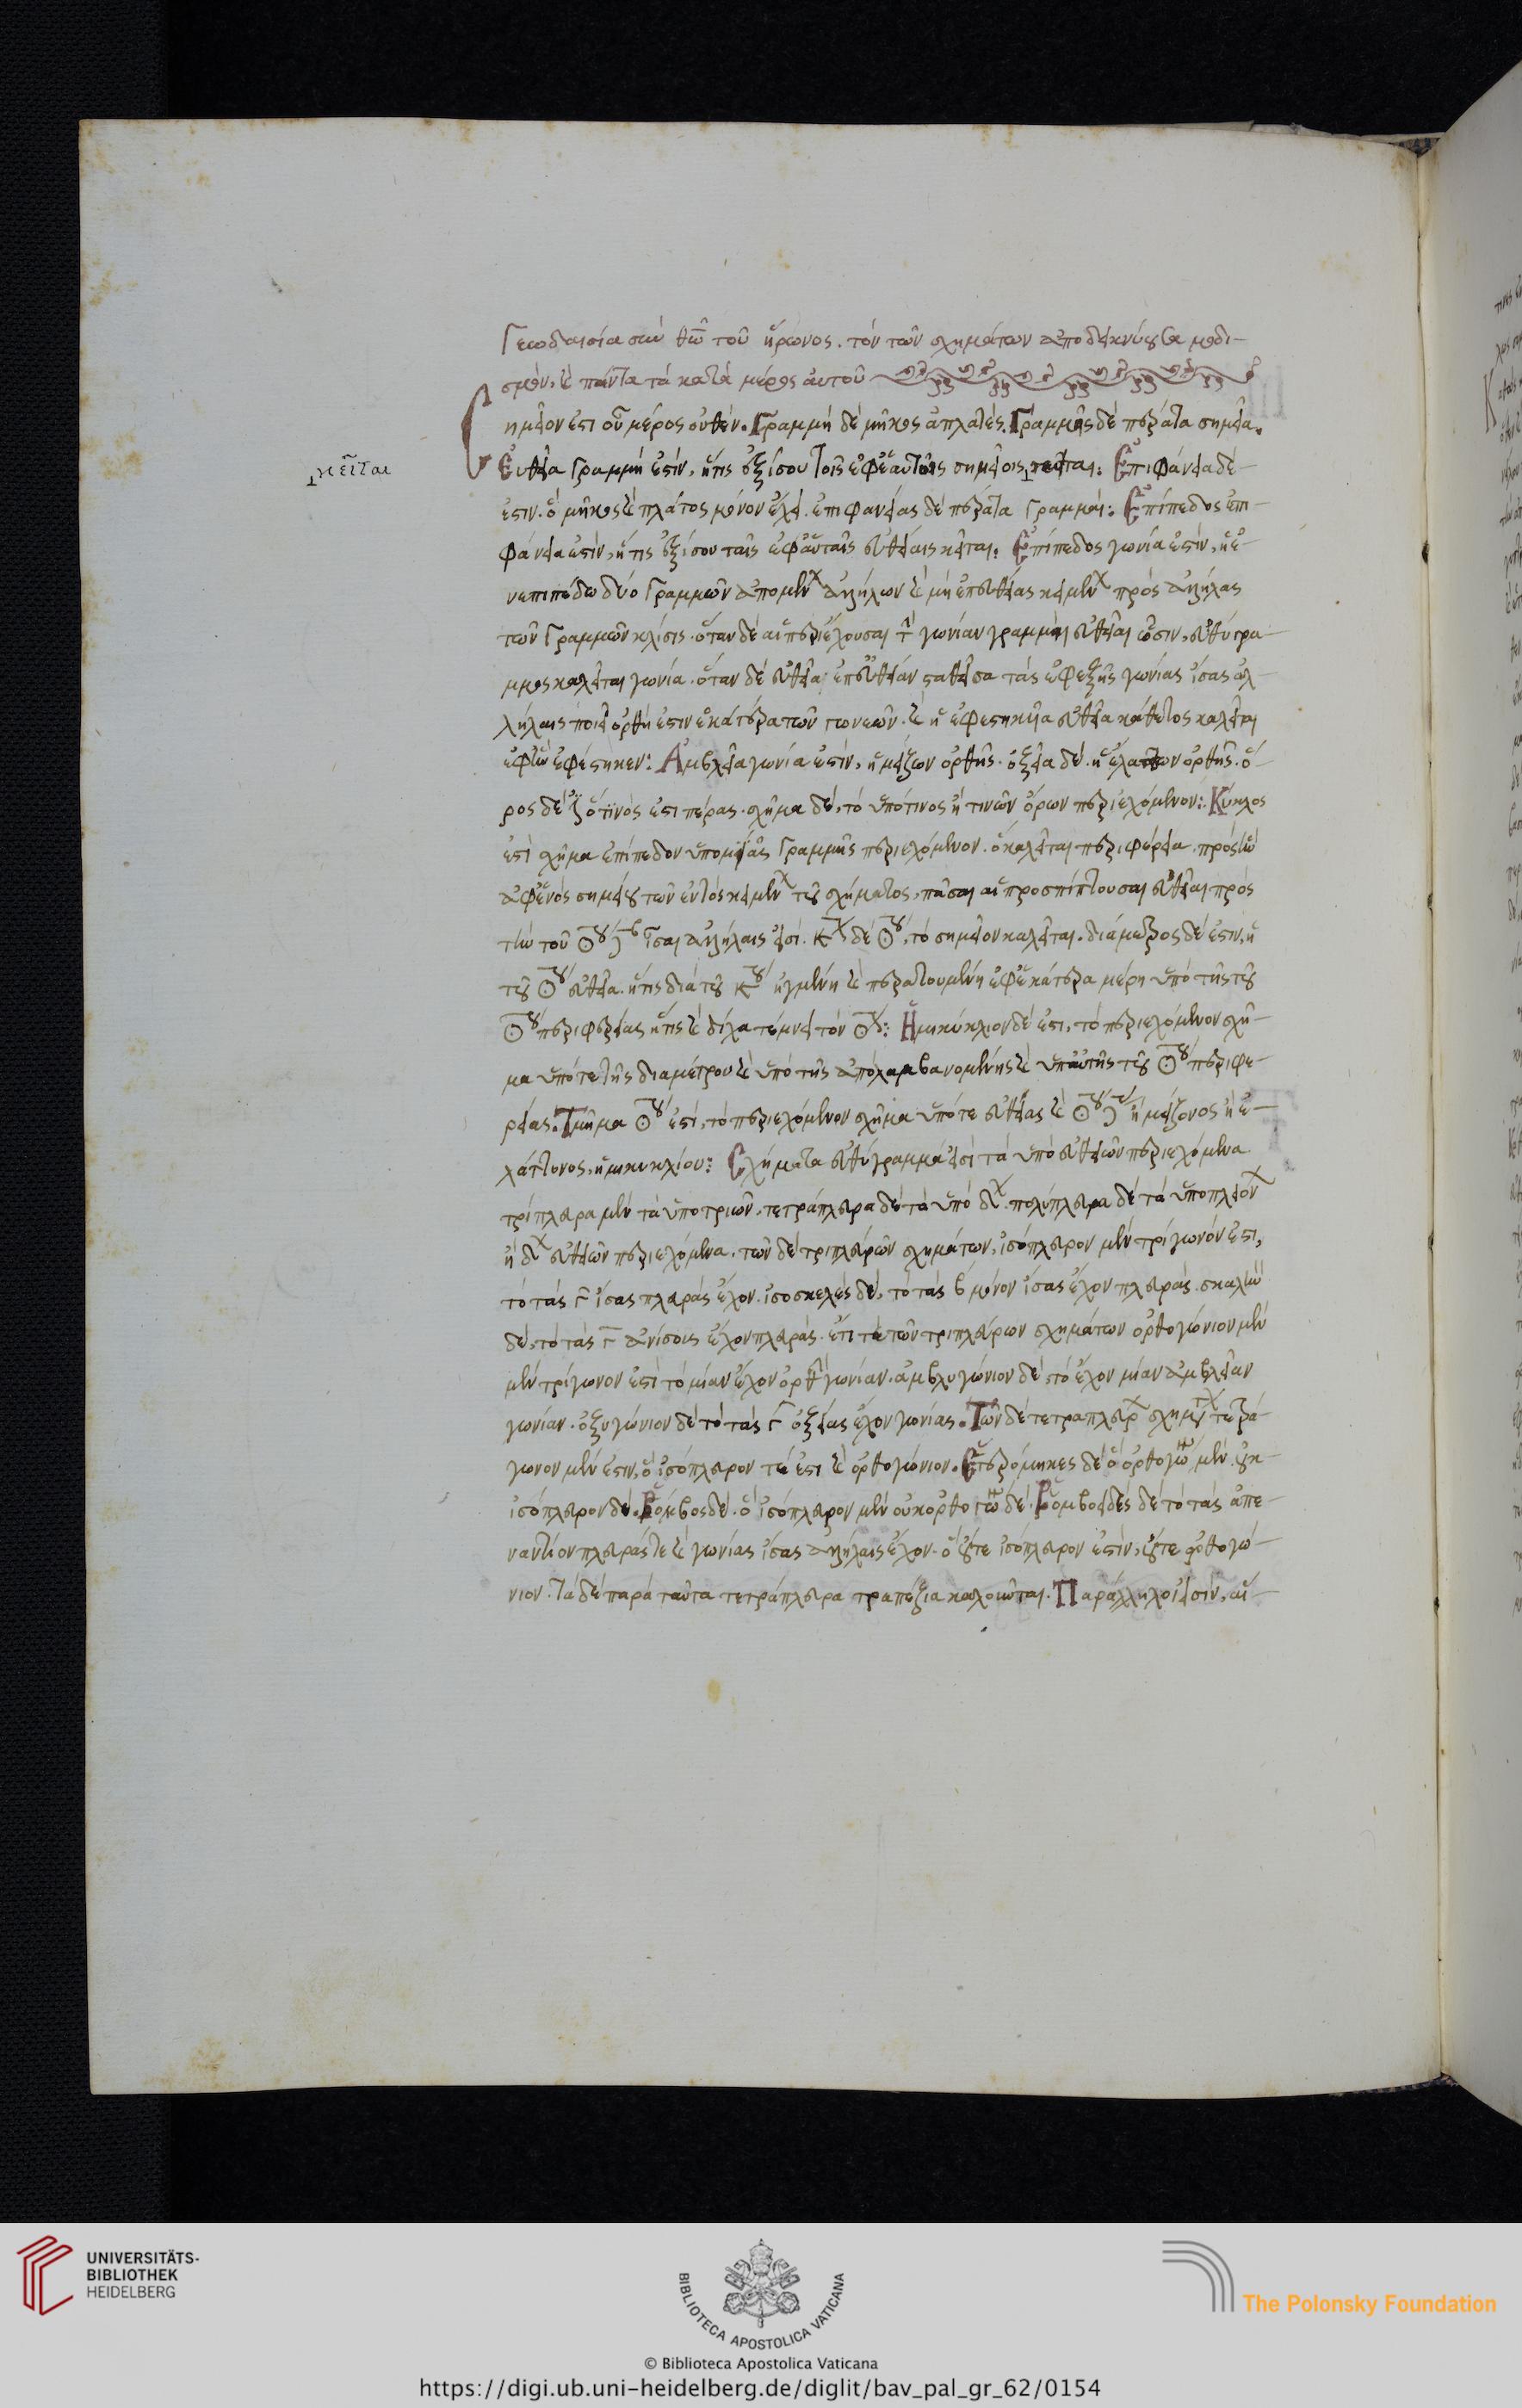 Γεωδαισία σὺν θῶ τοῦ ἥρωνος. τὸν τῶν σχημάτων ἀποδεικνύουσα
σμὸν, καὶ πάντα τὰ κατὰ μέρος αὐτοῦ
Σημεῖον ἐστι οὗ μέρος οὐθέν. Γραμμὴ δὲ μῆκος ἀπλατές. Γραμμῆς δὲ πέρατα σημεῖα.
κεῖται
Εὐθεῖα Γραμμή ἐστίν, ἥτις ἐξίσου τοῖς ἐφ ἑαυτῆς σημείοις κεῖται: Ἐπιφάνεια δέ
ἐστιν. ὃ μῆκος καὶ πλάτος μόνον ἔχει. ἐπιφανείας δὲ πέρατα Γραμμαί: Ἐπίπεδος ἐπι
φάνεια ἐστίν, ἥτις ἐξίσου ταῖς ἐφ αὑταῖς εὐθείαις κεῖται: Ἐπίπεδος γωνία ἐστίν, ἡ ἐ
νεπιπέδω δύο Γραμμῶν ἁπομένων ἀλλήλων καὶ μὴ ἐπευθείας κειμένων πρὸς ἀλλήλας
τῶν Γραμμῶν κλίσις. ὅταν δὲ αἱ περιέχουσαι τὴν γωνίαν γραμμαὶ εὐθεῖαι ὦσιν, εὐθύγρα
μμος καλεῖται γωνία. ὅταν δὲ εὐθεῖα ἐπευθεῖαν σταθεῖσα τὰς ἐφεξῆς γωνίας ἴσας ἀλ
λήλαις ποιεῖ ὀρθή ἐστιν ἑκάτερα τῶν γωνιῶν. καὶ ἡ ἐφεστηκυῖα εὐθεῖα κάθετος καλεῖται
ἐφ ἣν ἐφέστηκεν: Ἀμβλεῖα γωνία ἐστίν, ἡ μείζων ὀρθῆς. ὀξεῖα δέ. ἡ ἐλάττων ὀρθῆς. ὅ
ρος δέ ὅ τινός ἐστι πέρας. σχῆμα δέ, τὸ ὑπότινος ἤ τινων ὅρων περιεχόμενον: Κύκλος
ἐστὶ σχῆμα ἐπίπεδον ὑπομιᾶς Γραμμῆς περιεχόμενον. ὃ καλεῖται περιφέρεια. πρὸς ἣν
ἀφενὸς σημείου τῶν ἐντὸς κειμένων τοῦ σχήματος, πᾶσαι αἱ προσπίπτουσαι εὐθεῖαι πρὸς
τὴν τοῦ ἴσαι ἀλλήλαις εἰσί. δὲ τὸ σημεῖον καλεῖται. διάμετρος δέ ἐστιν, ἡ
τοῦ εὐθεῖα. ἥτις διὰ τοῦ ἠγμένη καὶ περατουμένη ἐφ ἑκάτερα μέρη ὑπὸ τῆς τοῦ
περιφερείας, ἥτις καὶ δίχα τέμνει τὸν Ἡμικύκλιον δέ ἐστι, τὸ περιεχόμενον σχῆ
μα ὑπότε τῆς διαμέτρου καὶ ὑπὸ τῆς ἀπολαμβανομένης καὶ ὑπ αὐτῆς τοῦ περιφε
ρείας. Τμῆμα ἐστί, τὸ περιεχόμενον σχῆμα ὑπότε εὐθείας καὶ ἢ μείζονος ἢ ἐ
λάττονος, ἡμικυκλίου: Σχήματα εὐθύγραμμά εἰσὶ τὰ ὑπὸ εὐθειῶν περιεχόμενα
τρίπλευρα μὲν τὰ ὑπο τριῶν, τετράπλευρα δὲ τὰ ὑπὸ δ. πολύπλευρα δὲ τὰ ὑποπλειόνων
ἢ δ εὐθειῶν περιεχόμενα. τῶν δὲ τριπλεύρων σχημάτων, ἰσόπλευρον μὲν τρίγωνόν ἐστι,
τὸ τὰς γ ἴσας πλευρὰς ἔχον. ἰσοσκελὲς δέ, τὸ τὰς β μόνον ἴσας ἔχον πλευράς. σκαληνὸν
δέ, τὸ τὰς γ ἀνίσους ἔχον πλευράς. ἔτι τε τῶν τριπλεύρων σχημάτων ὀρθογώνιον μὲν
μὲν τρίγωνον ἐστὶ τὸ μίαν ἔχον ὀρθὴν γωνίαν. ἀμβλυγώνιον δέ τὸ ἔχον μίαν ἀμβλεῖαν
γωνίαν. ὀξυγώνιον δὲ τὸ τὰς γ ὀξείας ἔχον γωνίας. Τῶν δὲ τετραπλεύρων σχημάτων τετρά
γωνον μέν ἐστιν, ὃ ἰσόπλευρον τέ ἐστι καὶ ὀρθογώνιον. Ἑτερόμηκες δὲ ὃ ὀρθογώνιον μὲν. οὐκ
ἰσόπλευρον δέ. Ῥόμβος δέ. ὃ ἰσόπλευρον μὲν οὐκ ὀρθογώνιον δέ. Ῥομβοειδὲς δὲ τὸ τὰς ἀπε
ναντίον πλευράς τε καὶ γωνίας ἴσας ἀλλήλαις ἔχον. ὃ οὔτε ἰσόπλευρον ἐστὶν, οὔτε ὀρθογώ
νιον. τὰ δὲ παρὰ ταῦτα τετράπλευρα τραπέζια καλοῦνται. Παράλληλοι εἰσὶν, αἱ
UNIVERSITÄTS-
BIBLIOTHEK
HEIDELBERG
BIBLIOTECA APOSTOLICA VATICANA
The Polonsky Foundation
© Biblioteca Apostolica Vaticana
https://digi.ub.uni-heidelberg.de/diglit/bav_pal_gr_62/0154